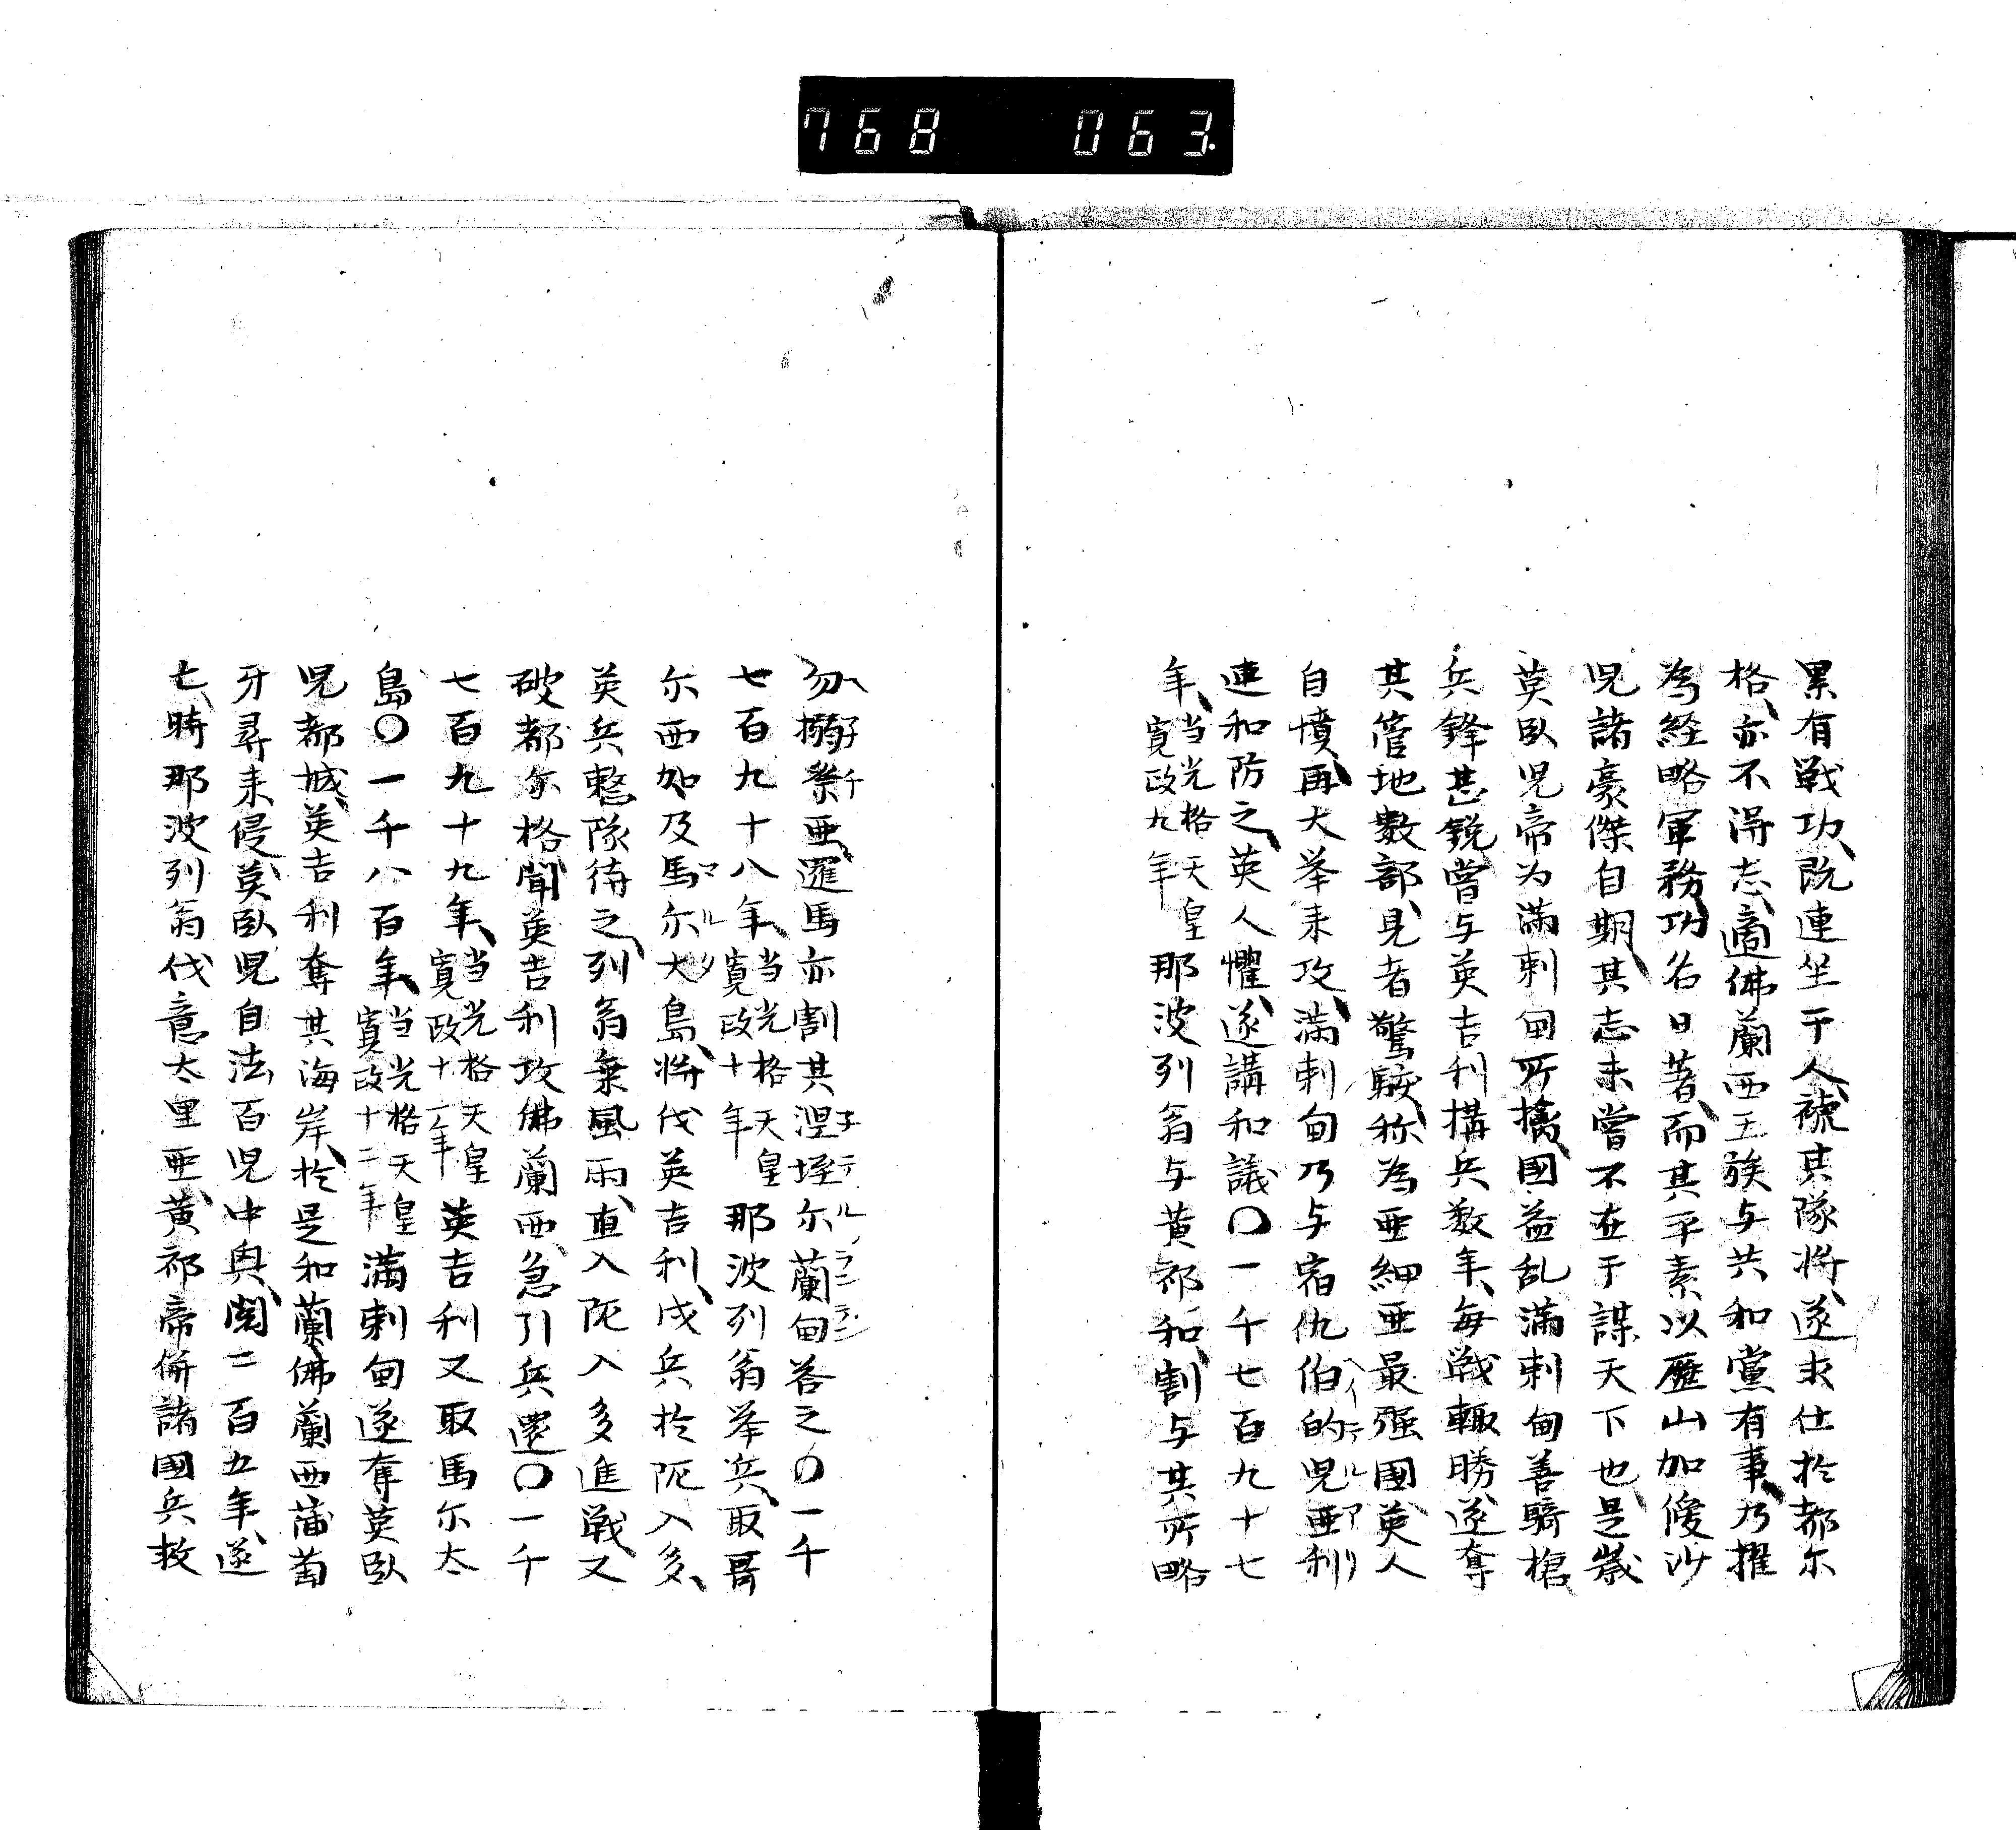 768 063.
累有戦功、既連坐于人、褫其隊将、遂求仕於都尓
格、亦不得志、適佛蘭西王族与共和黨有事、乃擢
為経略軍務、功名日著、而其平素以歴山加僾沙
児諸豪傑自期、其志未嘗不在于謀天下也、是歳
莫臥児帝为満剌甸所擒、國益乱、満剌甸善騎槍
兵鋒甚鋭、嘗与英吉利構兵数年、毎戦輙勝、遂奪
其管地數部、見者驚駭、称為亜細亜最强國、英人
自憤、再大挙来攻、満剌甸乃与宿仇伯的児亜利
連和防之、英人懼、遂講和議〇一千七百九十七
年、当光格天皇寛政九年那波列翁与黄祁和、割与其所略
勿搦祭亜、邏馬亦割其涅垤尓蘭甸答之〇一千
七百九十八年、当光格天皇寛政十年那波列翁挙兵、取哥
尓西加及馬尓大島、将伐英吉利、戍兵於阨入多、
英兵整隊待之、列翁乗風雨、直入阨入多進戦、又
破都尓格、聞英吉利攻佛蘭西、急引兵還〇一千
七百九十九年、当光格天皇寛政十一年英吉利又取馬尓太
島〇一千八百年、当光格天皇寛政十二年満剌甸遂奪莫臥
児都城、英吉利奪其海岸、於是和蘭佛蘭西蒲萄
牙尋来侵、莫臥児自法百児中興、閲二百五年遂
亡、時那波列翁伐意太里亜、黄祁帝併諸國兵救